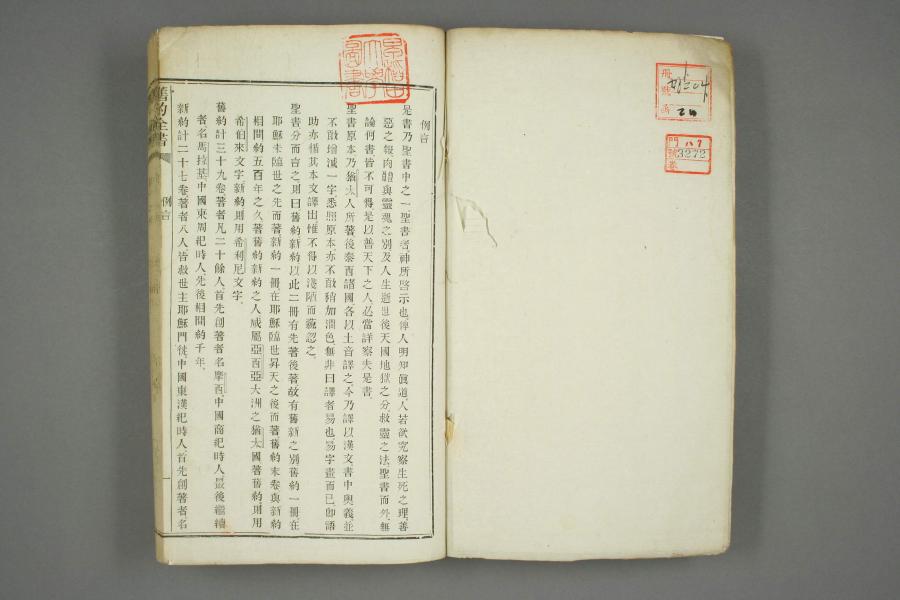 例言
是書乃聖書中之一聖書者神所啓示也俾人明知眞道人若欲究察生死之理善
惡之報肉體與靈魂之別及人生逝世後天國地獄之分救靈之法聖書而外無
論何書皆不可得是以普天下之人必當詳察夫是書
聖書原本乃猶太人所著後泰西諸國各以土音譯之今乃譯以漢文書中奧義並
不敢增減一字悉照原本亦不敢稍加潤色無非曰譯者易也易字畫而已卽語
助亦循其本文譯出惟不得以淺陋而藐忽之
聖書分而言之則曰舊約新約以此二冊有先著後著故有舊新之別舊約一冊在
耶穌未臨世之先而著新約一冊在耶穌臨世昇天之後而著舊約末卷與新約
相間約五百年之久著舊約新約之人咸屬亞西亞大洲之猶太國著舊約則用
希伯來文字新約則用希利尼文字
舊約計三十九卷著者凡二十餘人首先創著者名摩西中國商紀時人最後繼續
者名馬拉基中國東周紀時人先後相間約千年
新約計二十七卷著者八人皆救世主耶穌門徒中國東漢紀時人首先創著者名
舊約全書
例言
一
冊
號
函
門
號
八7
3272